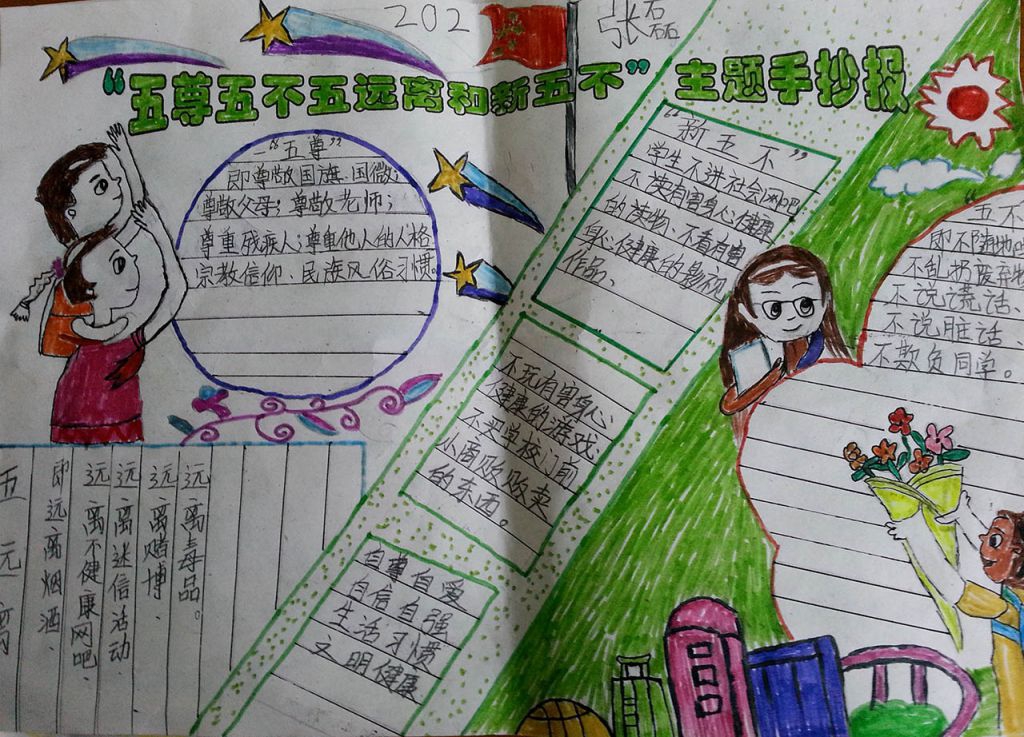 202
张磊
“五尊五不五远离和新五不”主题手抄报
“五尊”
即尊敬国旗、国徽；
尊敬父母；尊敬老师；
尊重残疾人；尊重他人的人格
宗教信仰、民族风俗习惯。
“新五不”
学生不进社会网吧
不读有害身心健康
的读物、不看有害
身心健康的影视
作品、
不玩有害身心
健康的游戏、
不买学校门前
小商贩贩卖
的东西。
自尊自爱
自信自强
生活习惯
文明健康
五不
即不随地
不乱扔废弃物
不说谎话、
不说脏话、
不欺负同学。
五元离
即远离烟酒、
远离不健康网吧、
远离迷信活动、
远离赌博、
远离毒品。